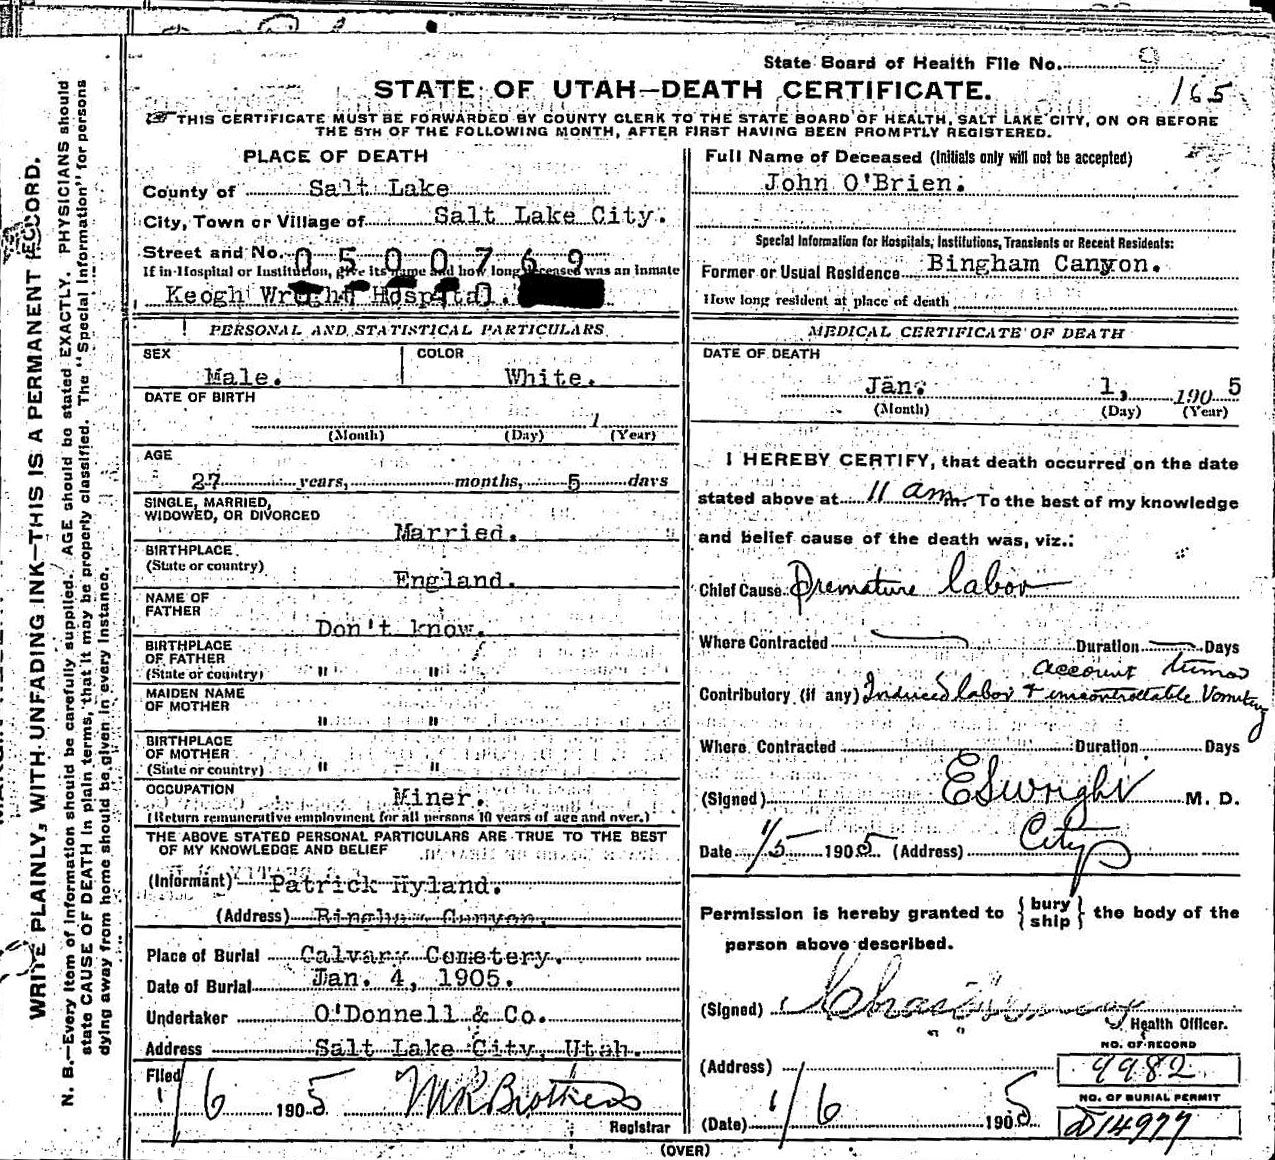 State Board of Health File No. 9
165
STATE OF UTAH—DEATH CERTIFICATE.
THIS CERTIFICATE MUST BE FORWARDED BY COUNTY CLERK TO THE STATE BOARD OF HEALTH, SALT LAKE CITY, ON OR BEFORE
THE 5TH OF THE FOLLOWING MONTH, AFTER FIRST HAVING BEEN PROMPTLY REGISTERED.
WRITE PLAINLY, WITH UNFADING INK—THIS IS A PERMANENT RECORD.
N. B.—Every item of information should be carefully supplied. AGE should be stated EXACTLY. PHYSICIANS should
state CAUSE OF DEATH in plain terms, that it may be properly classified. The "Special Information" for persons
dying away from home should be given in every instance.
PLACE OF DEATH
County of Salt Lake
City, Town or Village of Salt Lake City.
Street and No. 0500769
If in Hospital or Institution, give its name and how long deceased was an inmate
Keogh Wright Hospital.
PERSONAL AND STATISTICAL PARTICULARS
SEX Male.
COLOR White.
DATE OF BIRTH
1
(Month) (Day) (Year)
AGE
27 years, months, 5 days
SINGLE, MARRIED,
WIDOWED, OR DIVORCED
Married.
BIRTHPLACE
(State or country)
England.
NAME OF
FATHER
Don't know.
BIRTHPLACE
OF FATHER
(State or country) " "
MAIDEN NAME
OF MOTHER
" "
BIRTHPLACE
OF MOTHER
(State or country) " "
OCCUPATION
Miner.
(Return remunerative employment for all persons 10 years of age and over.)
THE ABOVE STATED PERSONAL PARTICULARS ARE TRUE TO THE BEST
OF MY KNOWLEDGE AND BELIEF
(Informant) Patrick Hyland.
(Address) Bingham Canyon.
Place of Burial Calvary Cemetery.
Date of Burial Jan. 4, 1905.
Undertaker O'Donnell & Co.
Address Salt Lake City, Utah.
Filed
1/6 1905 M R Brothers
Registrar
Full Name of Deceased (Initials only will not be accepted)
John O'Brien.
Special Information for Hospitals, Institutions, Transients or Recent Residents:
Former or Usual Residence Bingham Canyon.
How long resident at place of death
MEDICAL CERTIFICATE OF DEATH
DATE OF DEATH
Jan. 1, 1905
(Month) (Day) (Year)
I HEREBY CERTIFY, that death occurred on the date
stated above at 11 am. To the best of my knowledge
and belief cause of the death was, viz.:
Chief Cause Premature labor
Where Contracted Duration Days
account
Contributory (if any) Induced labor & uncontrollable Vomiting
Where Contracted Duration Days
(Signed) E S Wright M. D.
Date 1/5 1905 (Address) City
Permission is hereby granted to { bury ship } the body of the
person above described.
(Signed)
Health Officer.
NO. OF RECORD
(Address) 9982
NO. OF BURIAL PERMIT
(Date) 1/6 1905 D14977
(OVER)